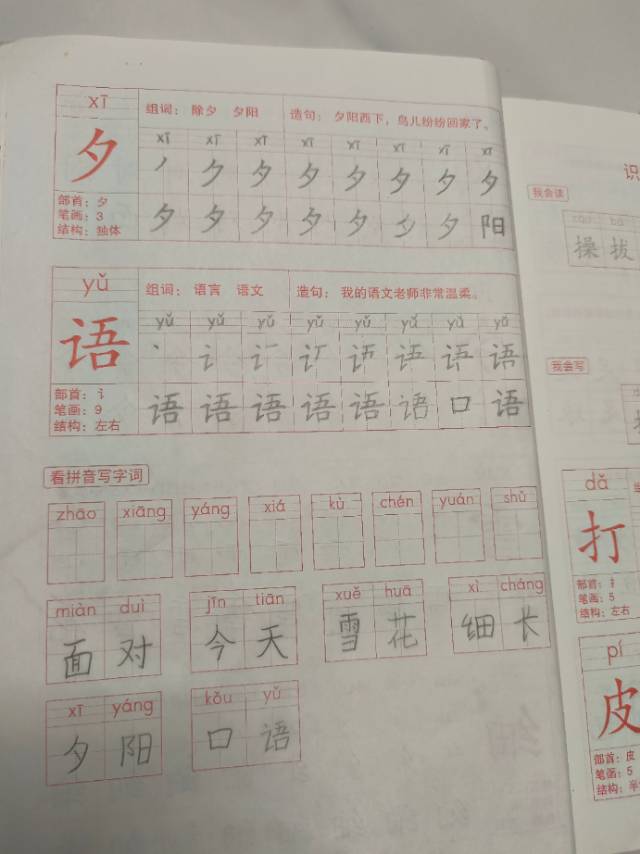 xī
组词： 除夕 夕阳 造句： 夕阳西下，鸟儿纷纷回家了。
xī xī xī xī xī xī xī xī
夕 丿 夕 夕 夕 夕 夕 夕 夕
部首：夕
笔画：3
结构：独体
夕 夕 夕 夕 夕 夕 夕 阳
yǔ
组词： 语言 语文 造句： 我的语文老师非常温柔。
yǔ yǔ yǔ yǔ yǔ yǔ yǔ yǔ
语 语 语
部首：讠
笔画：9
结构：左右
语 语 语 语 语 语 口 语
看拼音写字词
zhāo xiāng yáng xiá kù chén yuán shǔ
miàn duì jīn tiān xuě huā xì cháng
面 对 今 天 雪 花 细 长
xī yáng kǒu yǔ
夕 阳 口 语
识
我会读
cāo bá
操 拔
我会写
dǎ
打
部首：扌
笔画：5
结构：左右
pí
皮
部首：皮
笔画：5
结构：半